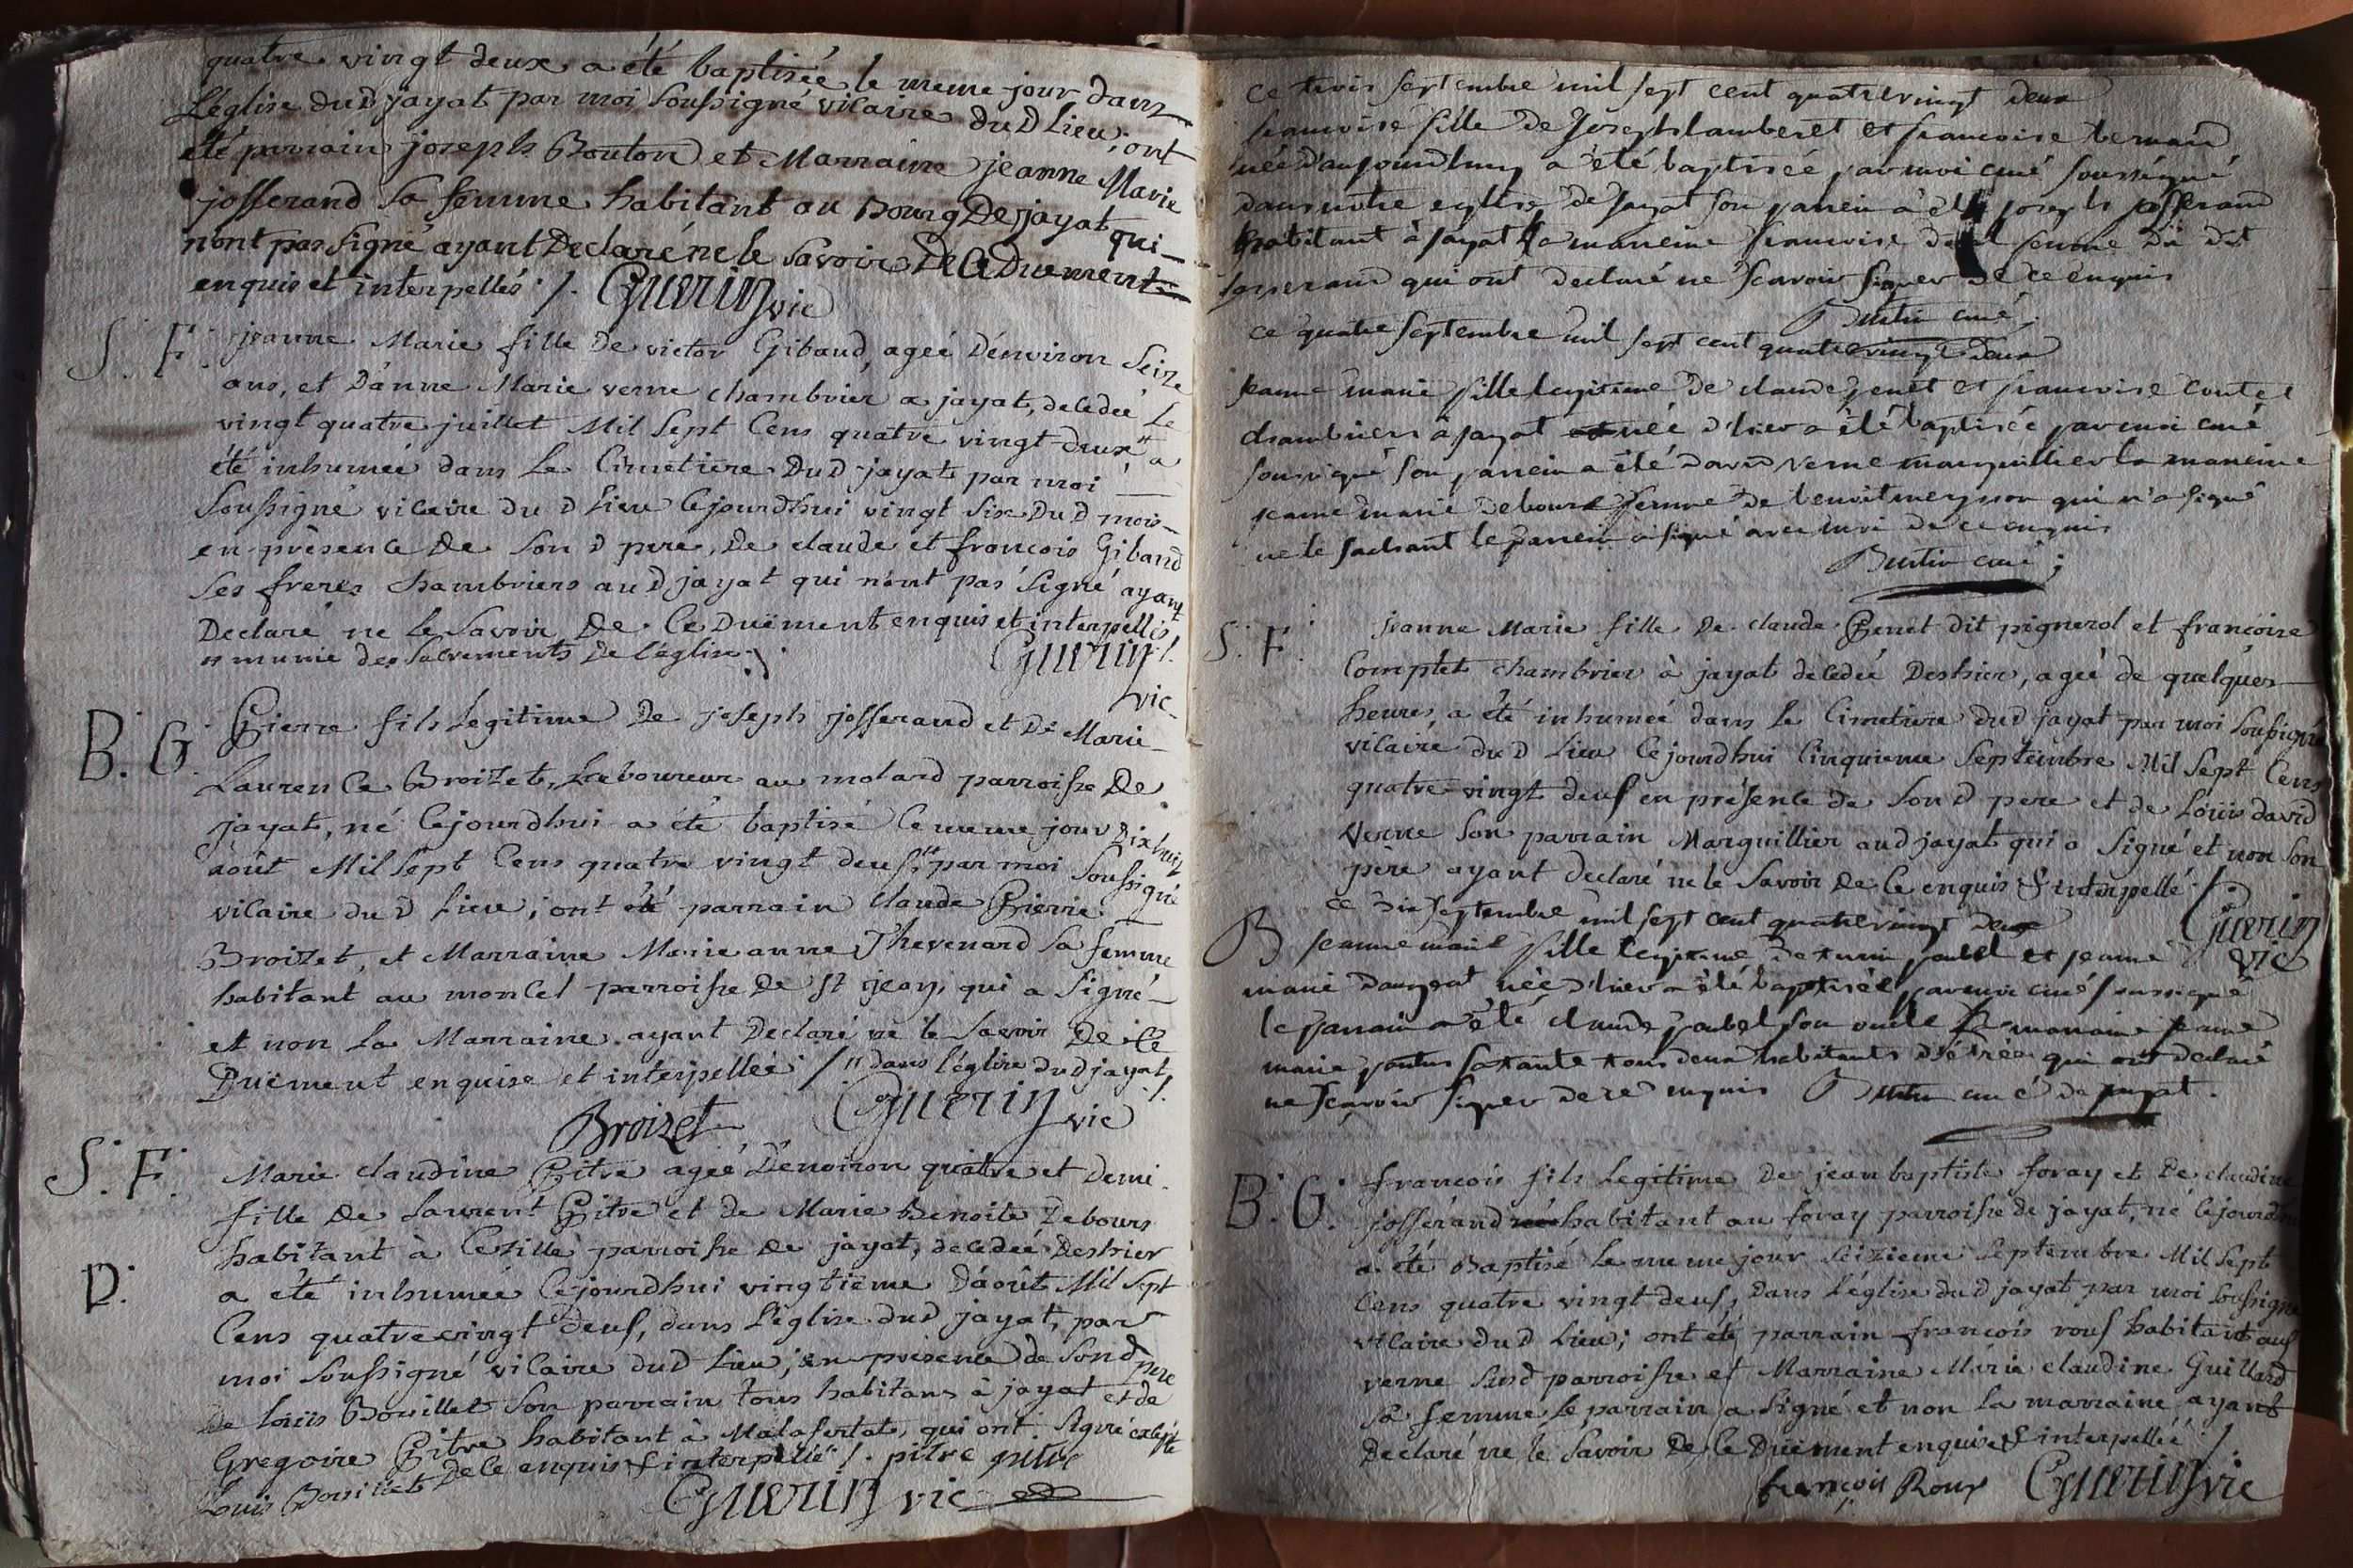 quatre vingt deux a été baptisée le meme jour dans
L'église dud jayat par moi soussigné vicaire du D Lieu; ont
été parrain joseph Bouton et Marraine jeanne Marie
josserand sa femme habitant au Bourg De jayat qui
n'ont pas signé ayant Declaré ne le savoir De Ce Duement
enquis et interpellés ./. Guerin vic
S. F. jeanne Marie fille De victor Gibaud, ageé D'environ seize
ans, et D'anne Marie verne chambrier a jayat, decedeé Le
vingt quatre juillet Mil sept Cens quatre vingt deux," a
été inhumeé dans Le Cimetiere Du D jayat par moi
soussigné vicaire du D Lieu Cejourdhui vingt six Du D mois
en présence De son D pere, De claude et francois Gibaud
ses freres chambriers au D jayat qui n'ont pas signé ayant
Declaré ne Le savoir De Ce Duëment enquis et interpellés
" munie des sacrements De l'église ./. Guerin /.
vic
B. G. Pierre fils Legitime De joseph josserand et De Marie
Laurence Broizet, Laboureur au molard parroisse De
jayat, né Cejourdhui a été baptisé Le meme jour Dixhuit
août Mil sept Cens quatre vingt deus," par moi soussigné
vicaire du D Lieu; ont été parrain claude Pierre
Broizet, et Marraine Marie anne Thevenard sa femme
habitant au moncel parroisse De st jean, qui a signé
et non La Marraine ayant Declaré ne le savoir De Ce
Duëment enquise et interpelleé ./. " dans l'église dud jayat /.
Broizet Guerin vic
S. F. Marie claudine Pitre ageé D'environ quatre et demi
fille De Laurent Pitre et de Marie Benoite Debours
habitant à Cezille parroisse De jayat, decedeé Deshier
D. a été inhumeé Cejourdhui vingtieme D'août Mil sept
Cens quatre vingt deus, dans L'église dud jayat, par
moi soussigné vicaire dud Lieu; en présence de son D pere
De Loüis Bouillet son parrain tous habitans à jayat et de
Gregoire Pitre habitant à Malafertat, qui ont signé excepté
Louis Bouillet De Ce enquis & interpellé ./. pitre pitre
Guerin vic
ce trois septembre mil sept cent quatrevingt deux
francoise fille de Joseph lamberet et francoise bernard
née d'aujourdhuy a été baptisée par moi curé soussigné
dans notre eglise de Jayat son parein a été joseph josserand
habitant à Jayat la mareine francoise femme du dit
josserand qui ont declaré ne scavoir signer de ce enquis
Butin curé;
ce quatre septembre mil sept cent quatrevingt deux
jeanne marie fille legitime de claude genet et francoise contet
chambriers à jayat née d'hier a été baptisée par moi curé
soussigné son parein a été david verne marguillier la mareine
jeanne marie debourd femme de benoit meynon qui n'a signé
ne le sachant le parein a signé avec moi de ce enquis
Butin curé;
S. F. jeanne Marie fille De claude Genet dit pignerol et francoise
Comptet chambrier à jayat decedeé Deshier, ageé de quelques
heures, a été inhumeé dans le Cimetiere dud jayat par moi soussigné
vicaire du D Lieu Cejourdhui Cinquieme septembre Mil sept Cens
quatre vingt deus en présence de son D pere et de Loüis david
verne son parrain Marguillier aud jayat qui a signé et non son
père ayant declaré ne le savoir De Ce enquis & interpellé ./.
Guerin vic
ce dix septembre mil sept cent quatrevingt deux
B jeanne marie fille legitime de poubel et jeanne
marie née d'hier a été baptisée par moi curé soussigné
le parrain a été claude poubel son oncle la maraine jeanne
marie sa tante tous deux habitants d'étrée qui ont declaré
ne scavoir signer de ce enquis Butin curé de jayat.
B. G. francois fils Legitime De jean baptiste foray et De claudine
josserand habitant au foray parroisse de jayat, né Cejourdhui
a été Baptisé Le meme jour seizieme septembre Mil sept
Cens quatre vingt deus, Dans L'église du D jayat par moi soussigné
vicaire du D Lieu; ont été parrain francois rous habitant aus
verne susd parroisse et Marraine Marie claudine Guillard
sa femme Le parrain a signé et non La marraine ayant
Declaré ne le savoir De Ce Duëment enquise & interpelleé ./.
françois Roux Guerin vic